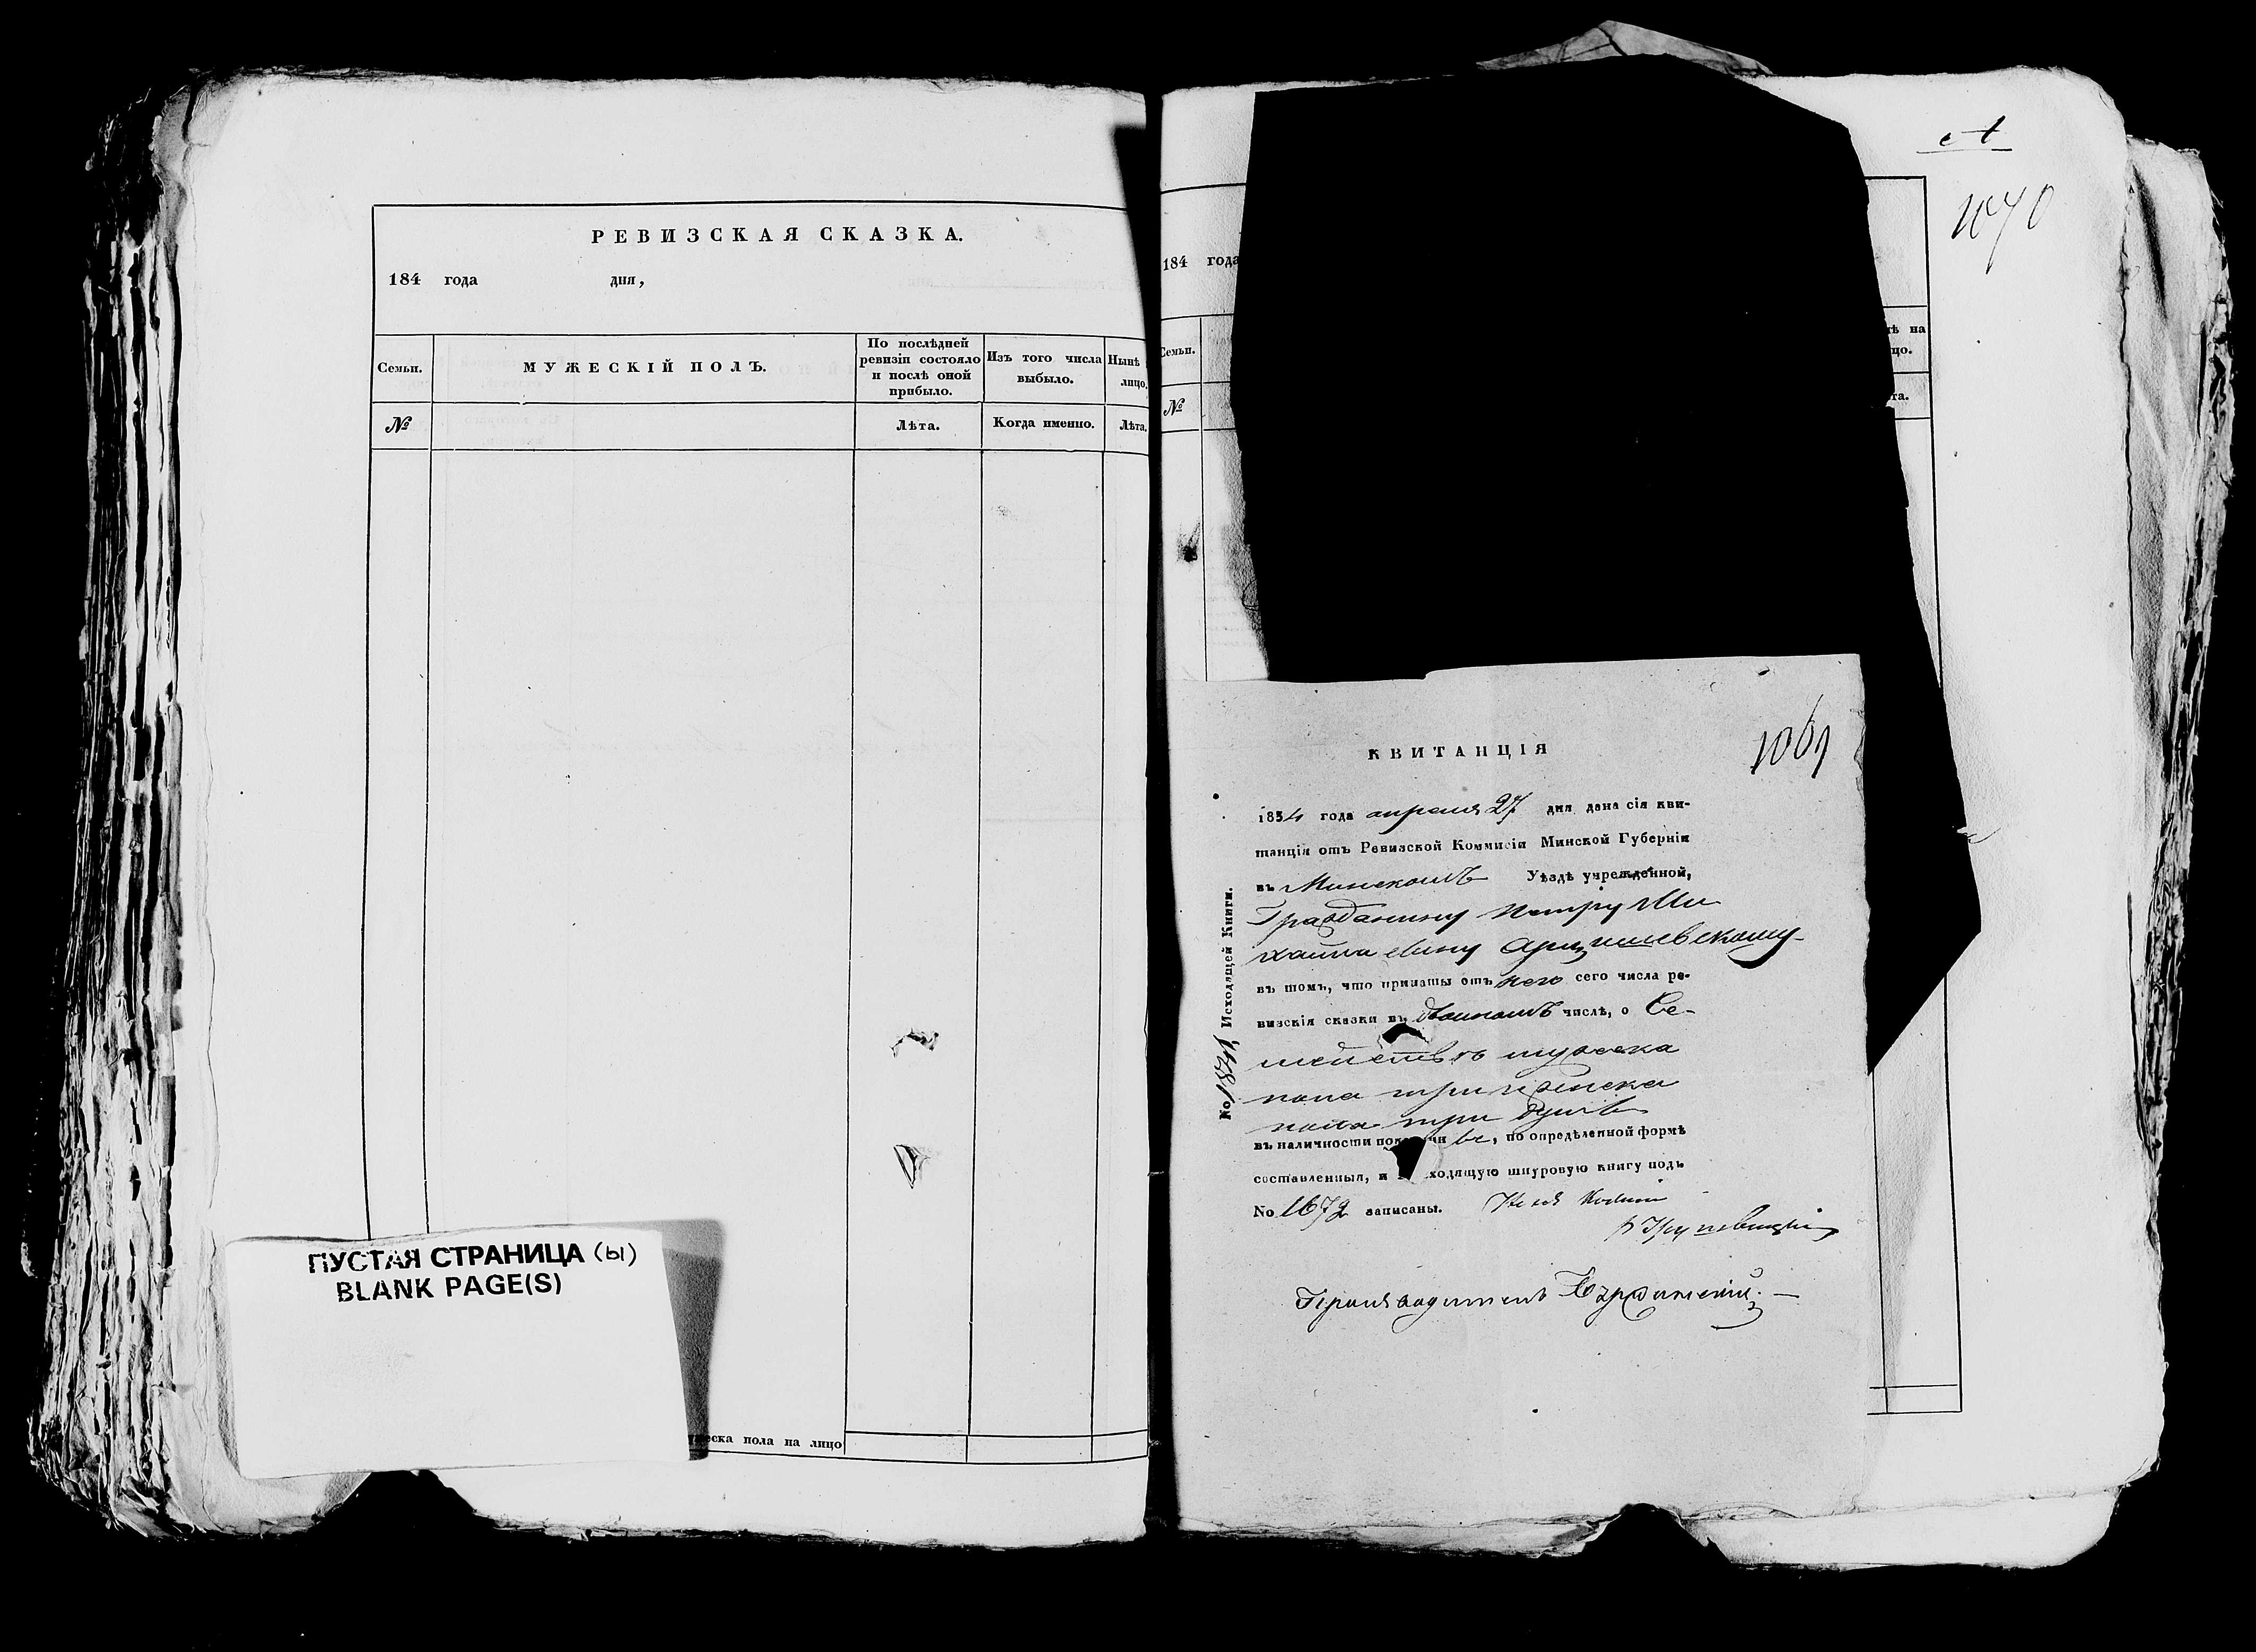 РЕВИЗСКАЯ СКАЗКА.
184 года дня,
Семьи.
МУЖЕСКІЙ ПОЛЪ.
По послѣдней ревизіи состояло и послѣ оной прибыло.
Изъ того числа выбыло.
Нынѣ лицо.
№
Лѣта.
Когда именно.
Лѣта.
ПУСТАЯ СТРАНИЦА (ы)
BLANK PAGE(S)
еска пола на лицо
184 года
Семьи.
№
1070
ѣ на
цо.
та.
КВИТАНЦІЯ
1069
1854 года апреля 27 дня дана сія кви-
танція отъ Ревизской Коммисіи Минской Губерніи
въ Минскомъ Уѣздѣ учрежденной,
Гражданину Петру Ми
хайлавичу Арцишевскому
въ томъ, что приняты отъ него сего числа ре-
визскія сказки въ двойномъ числѣ, о Се-
мействѣ мужеска
пола три женска
пола три душѣ
въ наличности по, по опредѣленной формѣ
составленныя, и ходящую шнуровую книгу подъ
No 1672 записаны.
Производитель
No Исходящей Книги.